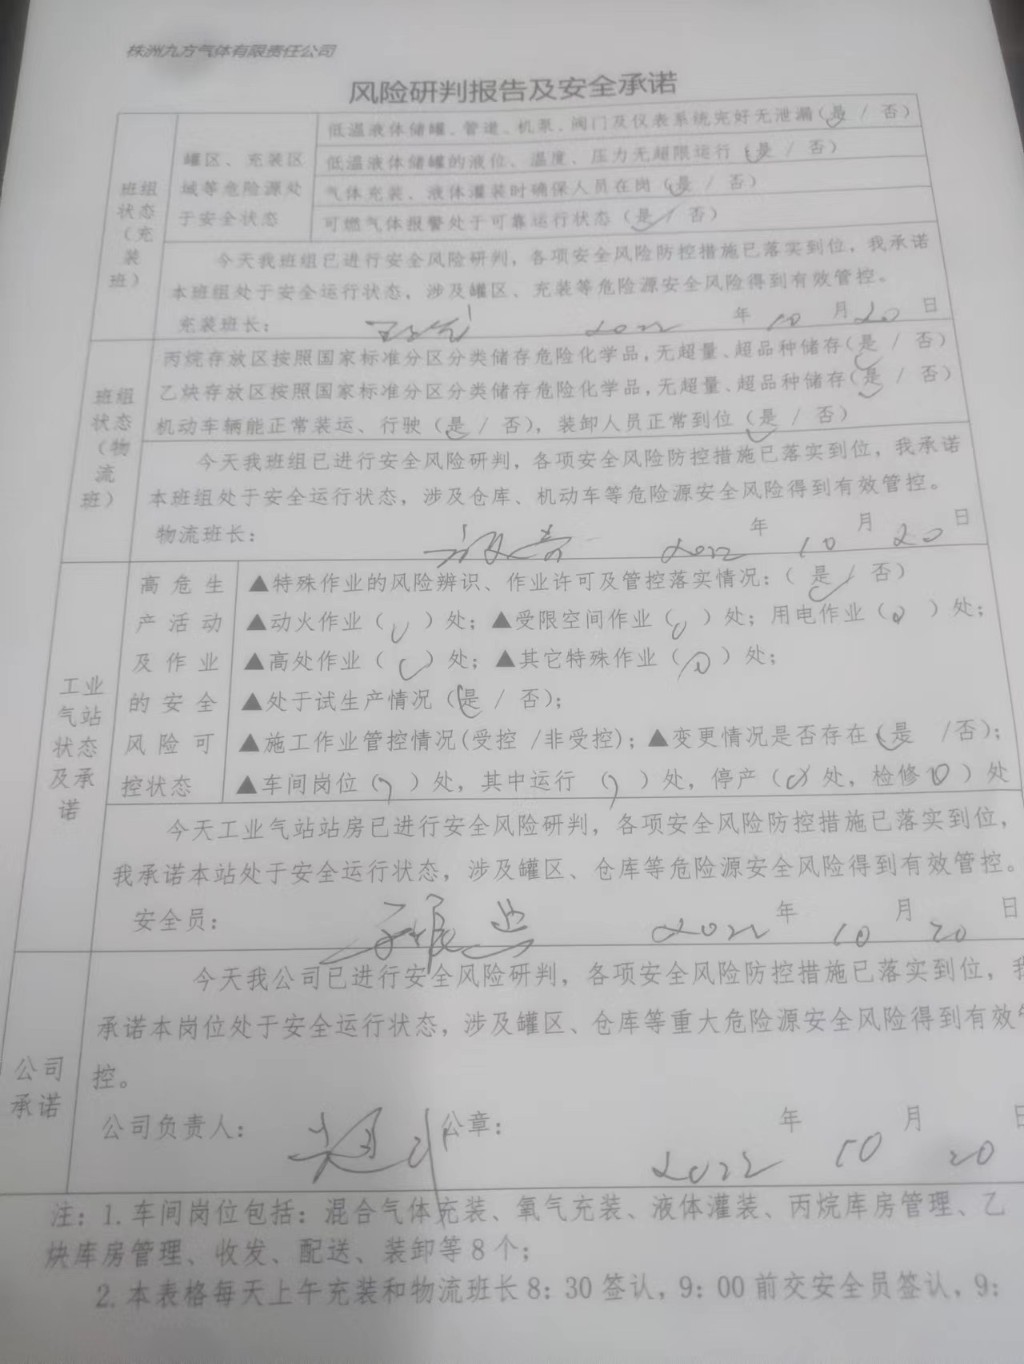 株洲九方气体有限责任公司
风险研判报告及安全承诺
班组状态（充装班）
罐区、充装区域等危险源处于安全状态
低温液体储罐、管道、机泵、阀门及仪表系统完好无泄漏（是 / 否）
低温液体储罐的液位、温度、压力无超限运行（是 / 否）
气体充装、液体灌装时确保人员在岗（是 / 否）
可燃气体报警处于可靠运行状态（是 / 否）
今天我班组已进行安全风险研判，各项安全风险防控措施已落实到位，我承诺
本班组处于安全运行状态，涉及罐区、充装等危险源安全风险得到有效管控。
充装班长： 2022 年 10 月 20 日
班组状态（物流班）
丙烷存放区按照国家标准分区分类储存危险化学品，无超量、超品种储存（是 / 否）
乙炔存放区按照国家标准分区分类储存危险化学品，无超量、超品种储存（是 / 否）
机动车辆能正常装运、行驶（是 / 否），装卸人员正常到位（是 / 否）
今天我班组已进行安全风险研判，各项安全风险防控措施已落实到位，我承诺
本班组处于安全运行状态，涉及仓库、机动车等危险源安全风险得到有效管控。
物流班长： 2022 年 10 月 20 日
工业气站状态及承诺
高危生产活动及作业的安全风险可控状态
▲特殊作业的风险辨识、作业许可及管控落实情况：（ 是 / 否）
▲动火作业（ 0 ）处；▲受限空间作业（ 0 ）处；用电作业（ 0 ）处；
▲高处作业（ 0 ）处；▲其它特殊作业（ 0 ）处；
▲处于试生产情况（是 / 否）；
▲施工作业管控情况(受控 /非受控)；▲变更情况是否存在（是 /否）；
▲车间岗位（ ）处，其中运行（ ）处，停产（ 0 ）处，检修（ 0 ）处
今天工业气站站房已进行安全风险研判，各项安全风险防控措施已落实到位，
我承诺本站处于安全运行状态，涉及罐区、仓库等危险源安全风险得到有效管控。
安全员： 2022 年 10 月 20 日
公司承诺
今天我公司已进行安全风险研判，各项安全风险防控措施已落实到位，我
承诺本岗位处于安全运行状态，涉及罐区、仓库等重大危险源安全风险得到有效
控。
公司负责人： 公章： 2022 年 10 月 20 日
注：1.车间岗位包括：混合气体充装、氧气充装、液体灌装、丙烷库房管理、乙
炔库房管理、收发、配送、装卸等8个；
2.本表格每天上午充装和物流班长8：30签认，9：00前交安全员签认，9：